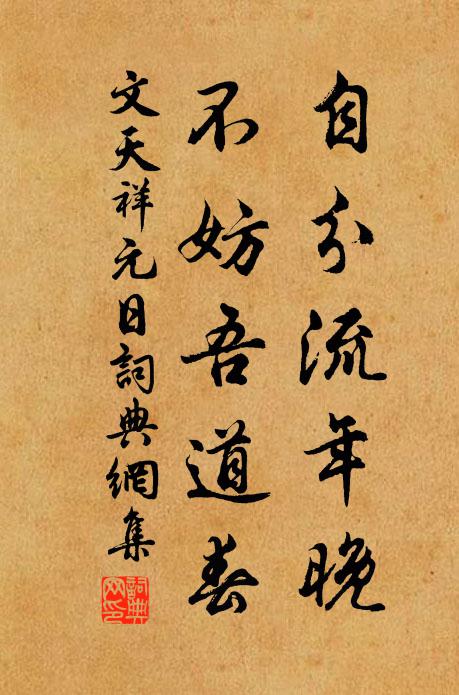 自分流年晚
不妨吾道春
文天祥元日詞典網集
詞典網印